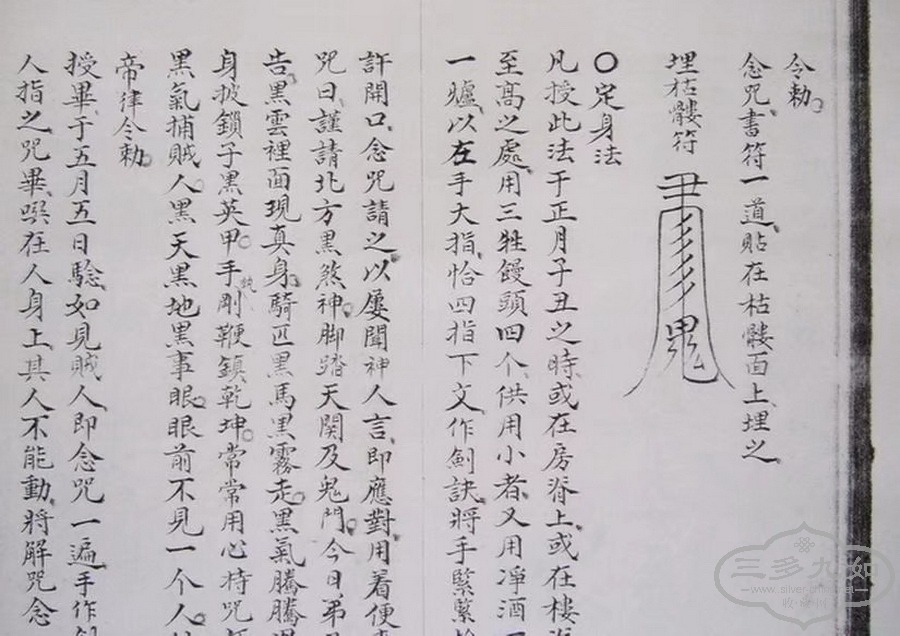 令勅。
念咒、書符一道、貼在枯髏面上、埋之、
埋枯髏符
○定身法
凡授此法、于正月子丑之時、或在房脊上、或在樓
至高之處、用三牲饅頭四个、供用小者、又用凈酒
一爐、以在手大指、恰四指下文、作劍訣、將手緊緊
許開口、念咒請之、以屢聞神人言、即應對、用着便
咒曰、謹請北方黑煞神。脚踏天関及鬼門。今日弟
告。黑雲裡面現真身。騎匹黑馬黑霧走。黑氣騰騰
身披鎖子黑英甲。手執剛鞭鎮乾坤。常常用心持咒
黑氣捕賊人。黑天黑地黑事眼。眼前不見一个人。
帝律令勅。
授畢、于五月五日驗、如見賊人、即念咒一遍、手作劍
人指之、咒畢、噀在人身上、其人不能動、將解咒念
三多九如